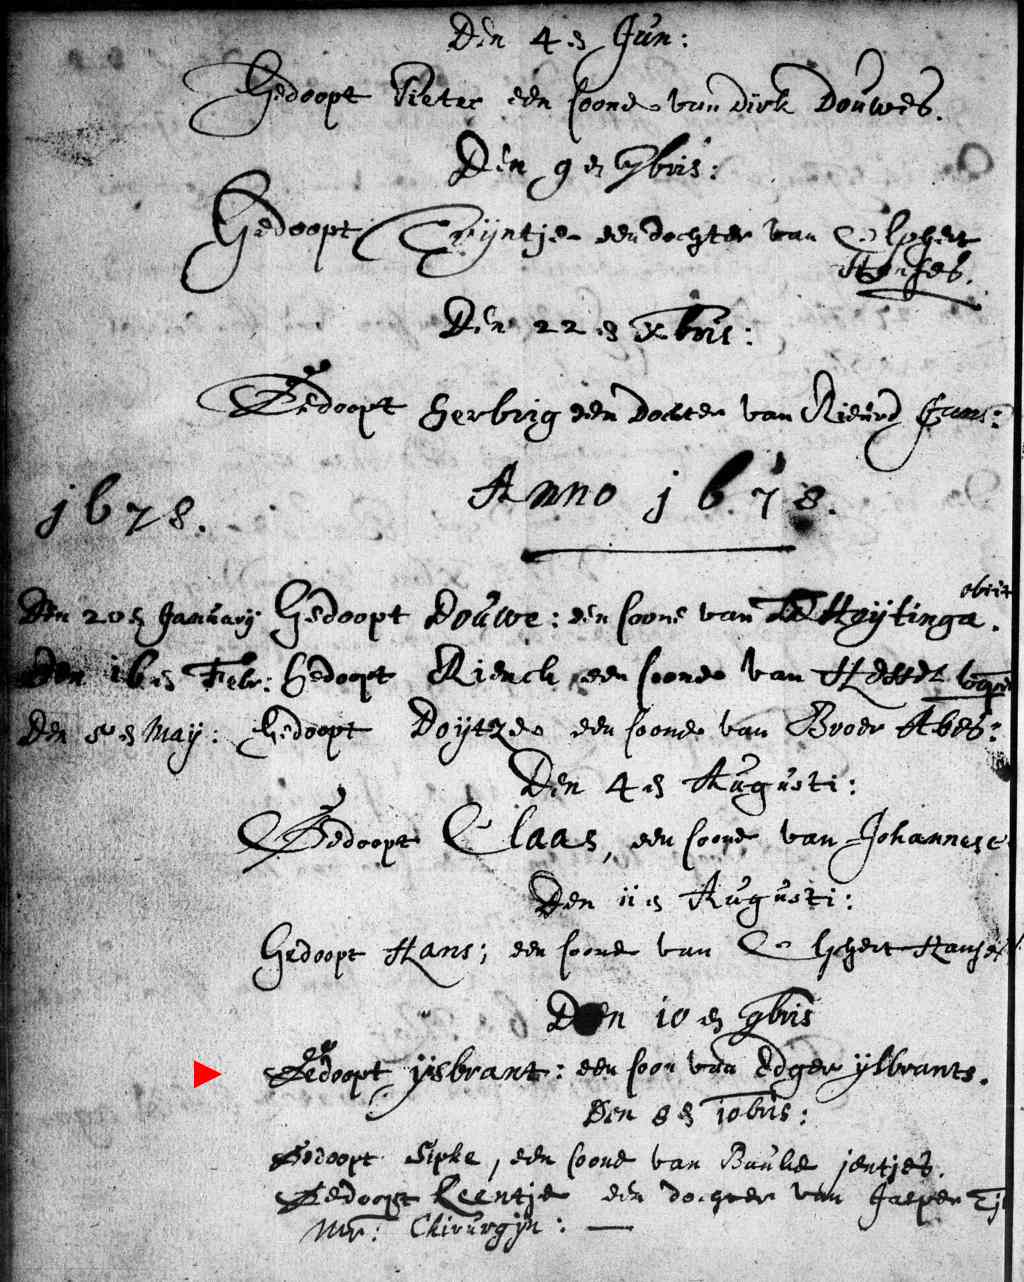 Den 4 en Jun:
Gedoopt Pieter een soone van Dirk Douwes.
Den 9 en 7bris:
Gedoopt Trijntje een dochter van Elphert
Hanses.
Den 22 en Xbris:
Gedoopt Herbrig een dochter van Rieurd
Anno 1678.
1678.
obiit
Den 20 en January Gedoopt Douwe: een soone van Haijtinga.
Den 16 en Febr: Gedoopt Rienck een soone van Hessel
Den 5 en Maij: Gedoopt Doijtze een soone van Broer Abes:
Den 4 en Augusti:
Gedoopt Claas, een soone van Johannes
Den 11 en Augusti:
Gedoopt Hans; een soone van Elphert Hanses
Den 10 en 9bris
Gedoopt ijsbrant: een soon van Edger ijsbrants.
Den 8 en 10bris:
Gedoopt Sipke, een soone van Bauke jentjes.
Gedoopt Leentje een dochter van Jasper
Mr: Chirurgijn: —